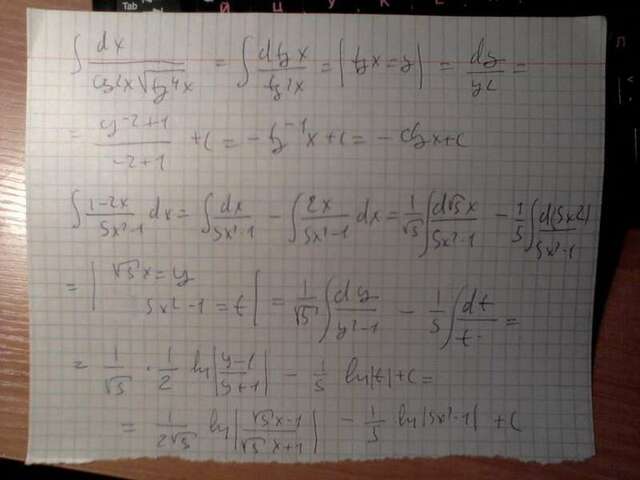 ∫ dx / (cos²x √(tg⁴x)) = ∫ dtgx / tg²x = |tgx = y| = dy / y² =
= y^(-2+1) / (-2+1) + C = - tg⁻¹x + C = - ctgx + C
∫ (1-2x)/(5x²-1) dx = ∫ dx/(5x²-1) - ∫ 2x/(5x²-1) dx = 1/√5 ∫ d√5x/(5x²-1) - 1/5 ∫ d(5x²)/(5x²-1)
= | √5x = y
5x²-1 = t | = 1/√5 ∫ dy/(y²-1) - 1/5 ∫ dt/t =
= 1/√5 · 1/2 ln|(y-1)/(y+1)| - 1/5 ln|t| + C =
= 1/(2√5) ln|(√5x-1)/(√5x+1)| - 1/5 ln|5x²-1| + C